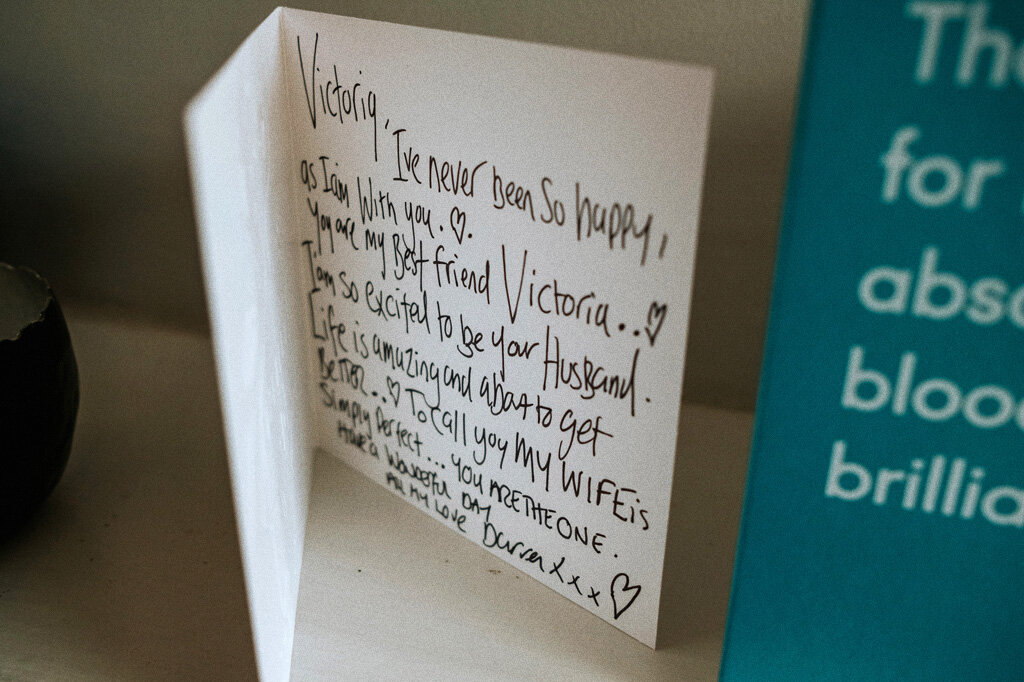 Victoria,
I've never been so happy,
as I am with you. ♡.
You are my Best friend Victoria..♡
I am so excited to be your Husband.
Life is amazing and about to get
Better..♡ To call you MY WIFE is
Simply Perfect... you ARE THE ONE.
Have a Wonderful Day
All my love Darren x x x ♡
The
for
abso
bloo
brillia